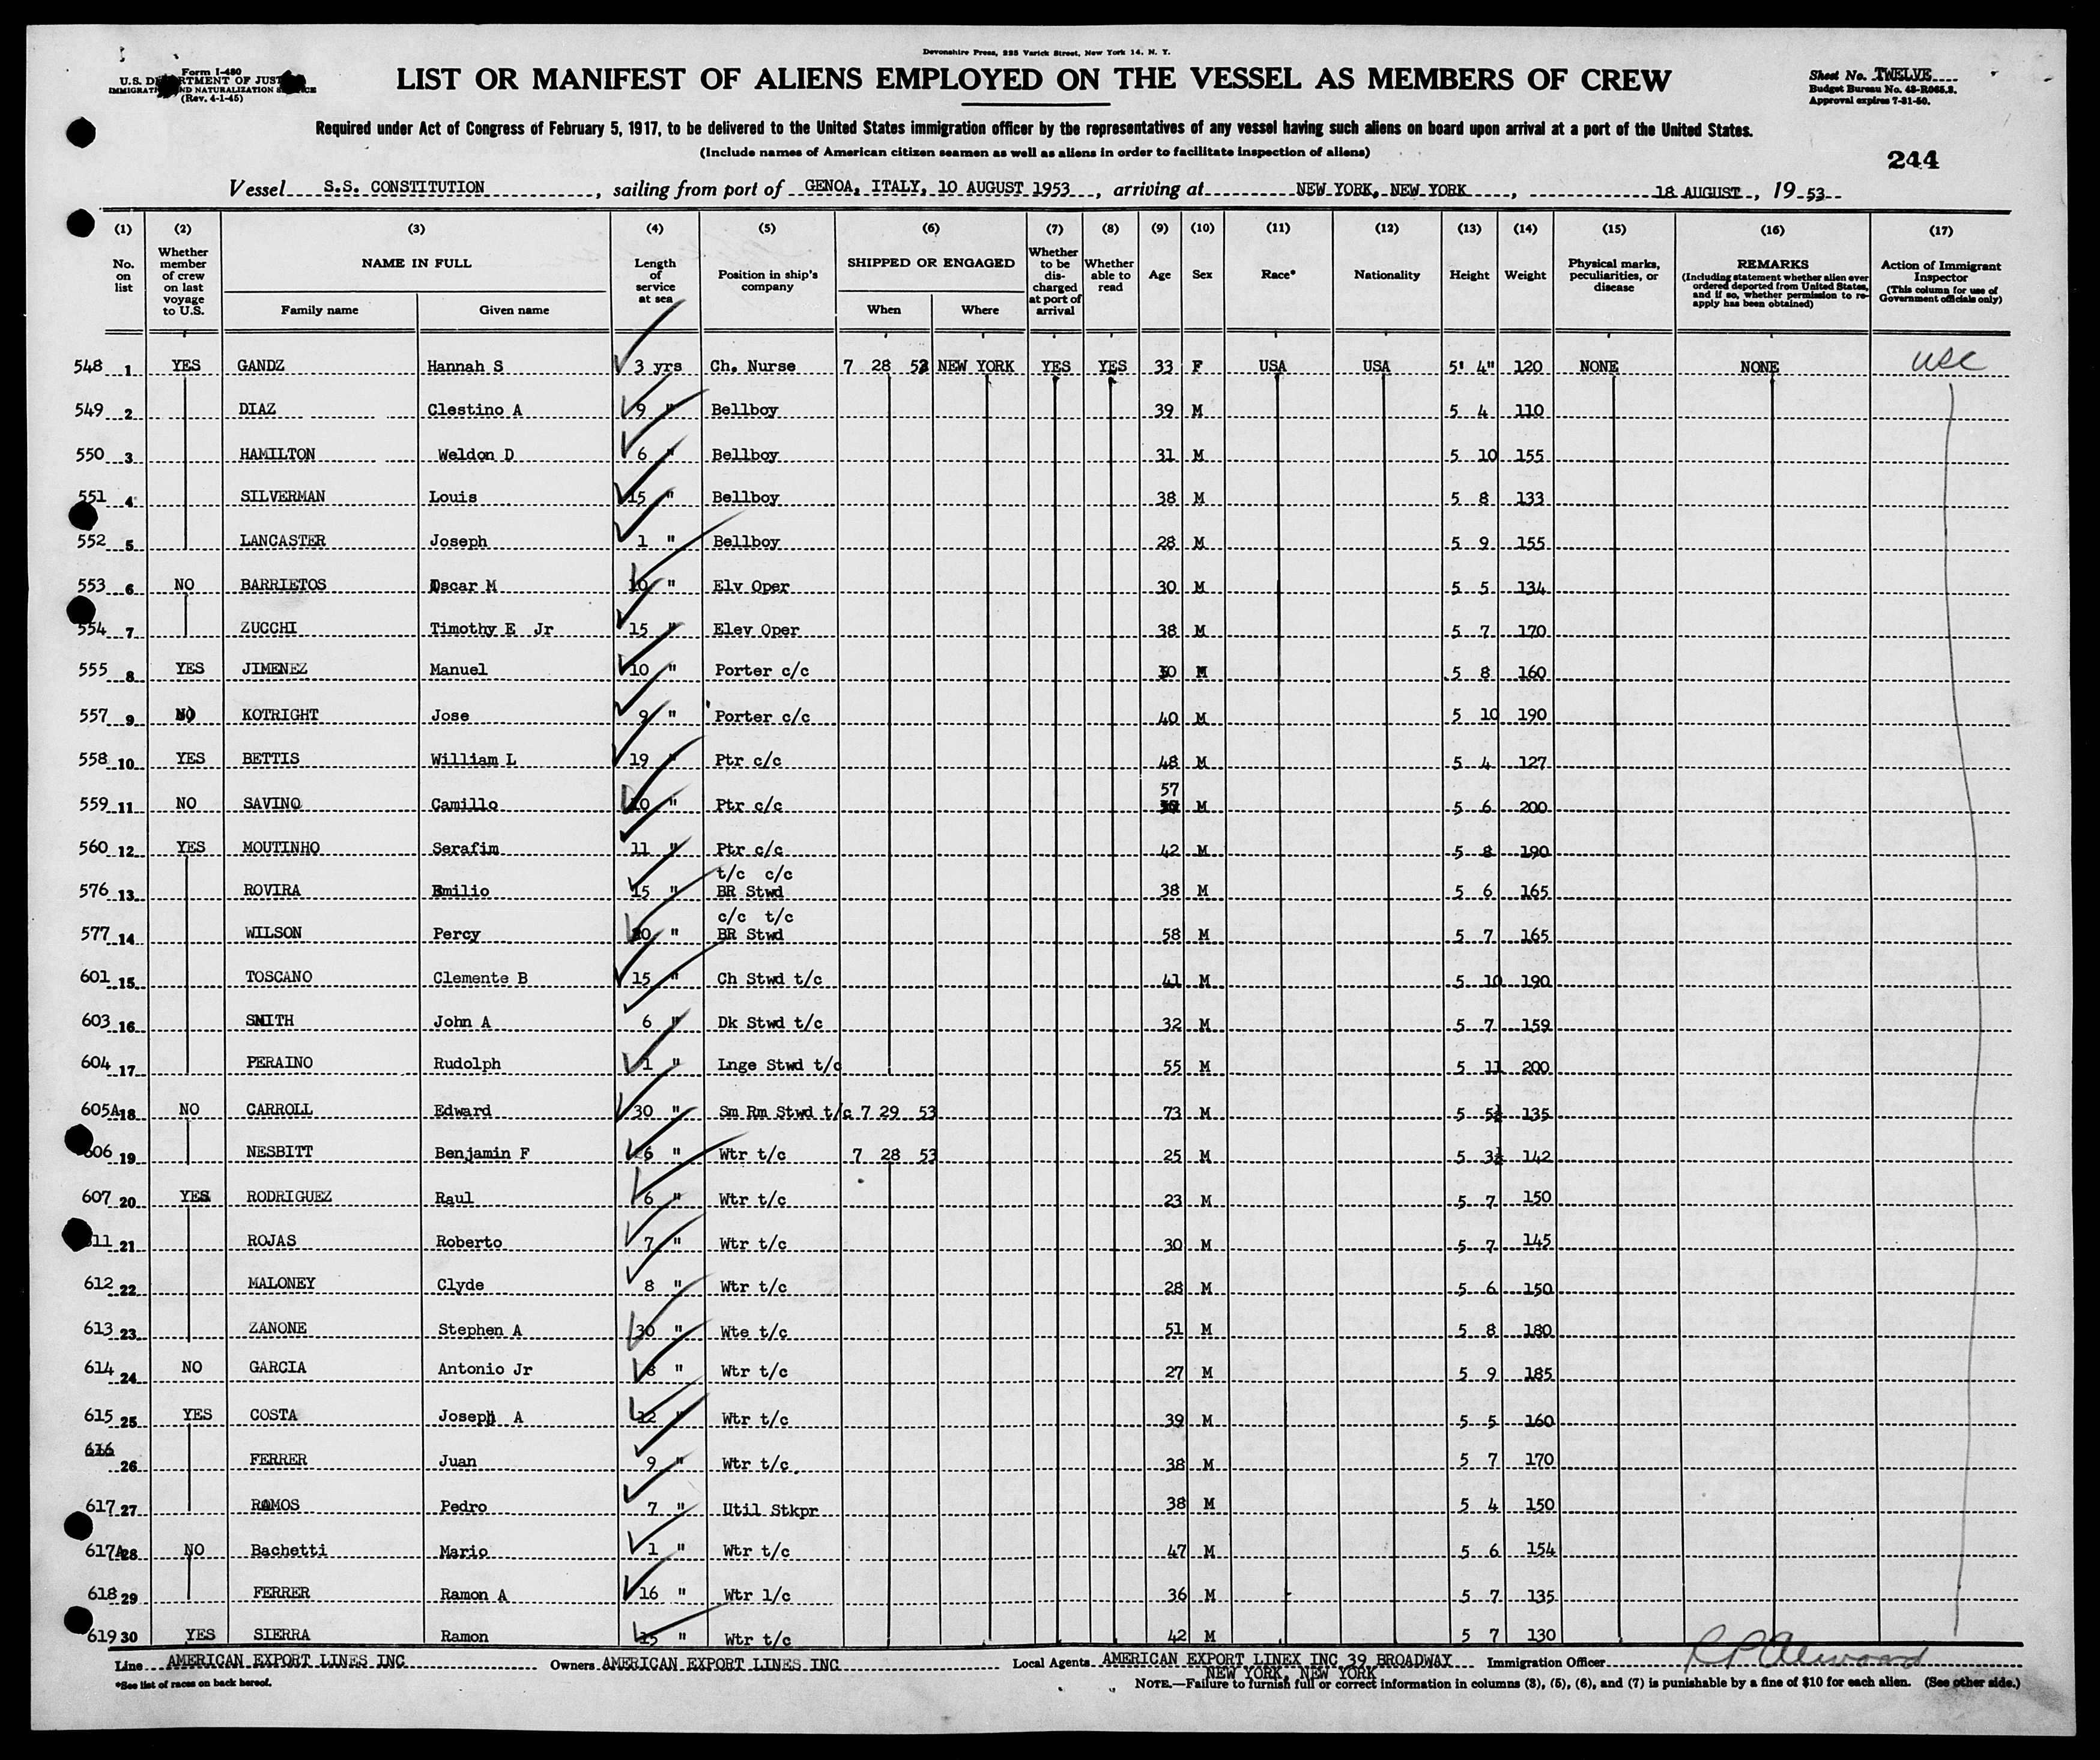 Devonshire Press, 225 Varick Street, New York 14, N. Y.
Form I-480
U.S. DEPARTMENT OF JUSTICE
IMMIGRATION AND NATURALIZATION SERVICE
(Rev. 4-1-45)
LIST OR MANIFEST OF ALIENS EMPLOYED ON THE VESSEL AS MEMBERS OF CREW
Sheet No. TWELVE
Budget Bureau No. 43-R065.3.
Approval expires 7-31-50.
Required under Act of Congress of February 5, 1917, to be delivered to the United States immigration officer by the representatives of any vessel having such aliens on board upon arrival at a port of the United States.
(Include names of American citizen seamen as well as aliens in order to facilitate inspection of aliens)
244
Vessel S.S. CONSTITUTION, sailing from port of GENOA, ITALY, 10 AUGUST 1953, arriving at NEW YORK, NEW YORK, 18 AUGUST, 19 53
(1) No. on list
(2) Whether member of crew on last voyage to U.S.
(3) NAME IN FULL Family name Given name
(4) Length of service at sea
(5) Position in ship's company
(6) SHIPPED OR ENGAGED When Where
(7) Whether to be discharged at port of arrival
(8) Whether able to read
(9) Age
(10) Sex
(11) Race*
(12) Nationality
(13) Height
(14) Weight
(15) Physical marks, peculiarities, or disease
(16) REMARKS (Including statement whether alien ever ordered deported from United States, and if so, whether permission to reapply has been obtained)
(17) Action of Immigrant Inspector (This column for use of Government officials only)
548 1 YES GANDZ Hannah S 3 yrs Ch. Nurse 7 28 53 NEW YORK YES YES 33 F USA USA 5' 4" 120 NONE NONE USC
549 2 DIAZ Clestino A 9 " Bellboy 39 M 5 4 110
550 3 HAMILTON Weldon D 6 " Bellboy 31 M 5 10 155
551 4 SILVERMAN Louis 15 " Bellboy 38 M 5 8 133
552 5 LANCASTER Joseph 1 " Bellboy 28 M 5 9 155
553 6 NO BARRIETOS Oscar M 10 " Elv Oper 30 M 5 5 134
554 7 ZUCCHI Timothy E Jr 15 " Elev Oper 38 M 5 7 170
555 8 YES JIMENEZ Manuel 10 " Porter c/c M 5 8 160
557 9 NO KOTRIGHT Jose 9 " Porter c/c 40 M 5 10 190
558 10 YES BETTIS William L 19 " Ptr c/c 48 M 5 4 127
559 11 NO SAVINO Camillo " Ptr c/c 57 M 5 6 200
560 12 YES MOUTINHO Serafim 11 " Ptr c/c 42 M 5 8 190
576 13 ROVIRA Emilio 15 " t/c c/c BR Stwd 38 M 5 6 165
577 14 WILSON Percy " c/c t/c BR Stwd 58 M 5 7 165
601 15 TOSCANO Clemente B 15 " Ch Stwd t/c 41 M 5 10 190
603 16 SMITH John A 6 " Dk Stwd t/c 32 M 5 7 159
604 17 PERAINO Rudolph 1 " Lnge Stwd t/c 55 M 5 11 200
605A 18 NO CARROLL Edward 30 " Sm Rm Stwd t/c 7 29 53 73 M 5 5½ 135
606 19 NESBITT Benjamin F 6 " Wtr t/c 7 28 53 25 M 5 3½ 142
607 20 YES RODRIGUEZ Raul 6 " Wtr t/c 23 M 5 7 150
611 21 ROJAS Roberto 7 " Wtr t/c 30 M 5 7 145
612 22 MALONEY Clyde 8 " Wtr t/c 28 M 5 6 150
613 23 ZANONE Stephen A 30 " Wte t/c 51 M 5 8 180
614 24 NO GARCIA Antonio Jr 8 " Wtr t/c 27 M 5 9 185
615 25 YES COSTA Joseph A 12 " Wtr t/c 39 M 5 5 160
616 26 FERRER Juan 9 " Wtr t/c. 38 M 5 7 170
617 27 RAMOS Pedro 7 " Util Stkpr 38 M 5 4 150
617A 28 NO Bachetti Mario 1 " Wtr t/c 47 M 5 6 154
618 29 FERRER Ramon A 16 " Wtr l/c 36 M 5 7 135
619 30 YES SIERRA Ramon 15 " Wtr t/c 42 M 5 7 130
Line AMERICAN EXPORT LINES INC Owners AMERICAN EXPORT LINES INC Local Agents AMERICAN EXPORT LINEX INC 39 BROADWAY Immigration Officer
NEW YORK, NEW YORK
*See list of races on back hereof.
NOTE.—Failure to furnish full or correct information in columns (3), (5), (6), and (7) is punishable by a fine of $10 for each alien. (See other side.)